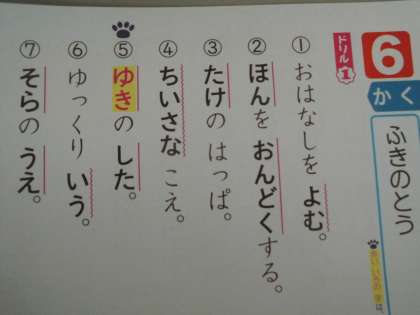 6
かく
ふきのとう
ドリル1
① おはなしを よむ。
② ほんを おんどくする。
③ たけの はっぱ。
④ ちいさな こえ。
⑤ ゆきの した。
⑥ ゆっくり いう。
⑦ そらの うえ。